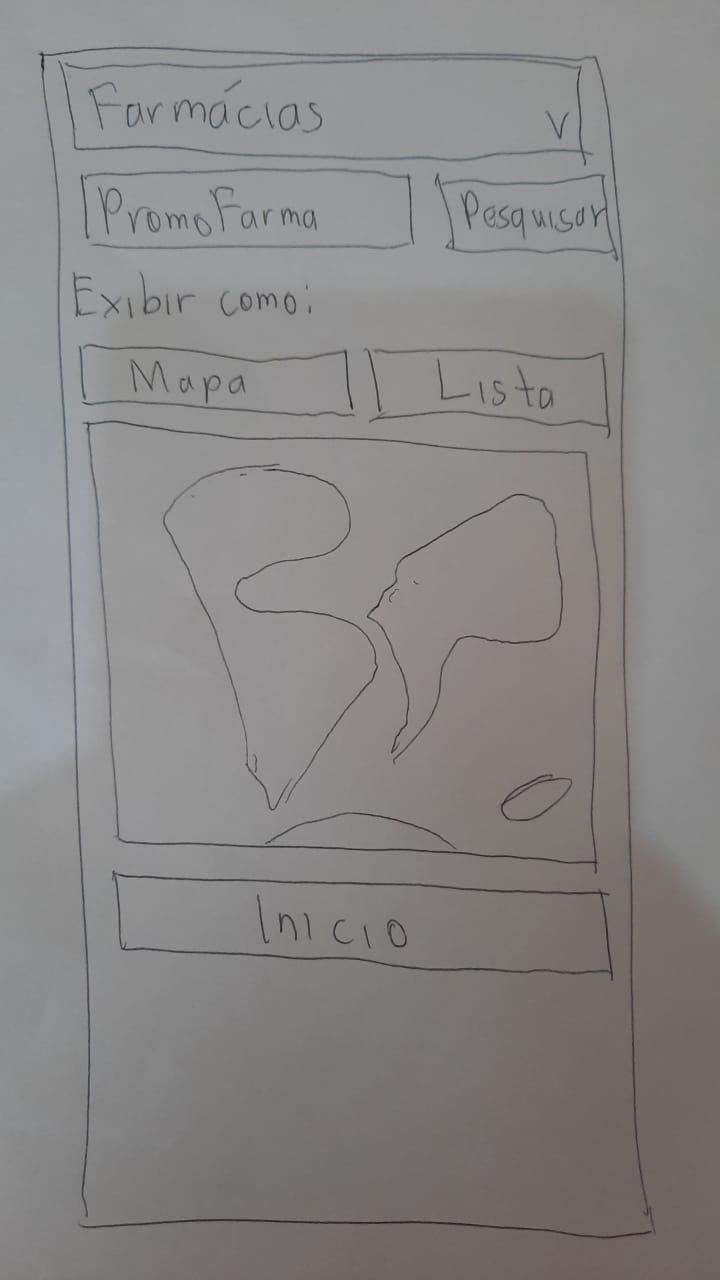 Farmácias v
PromoFarma Pesquisar
Exibir como:
Mapa Lista
Inicio